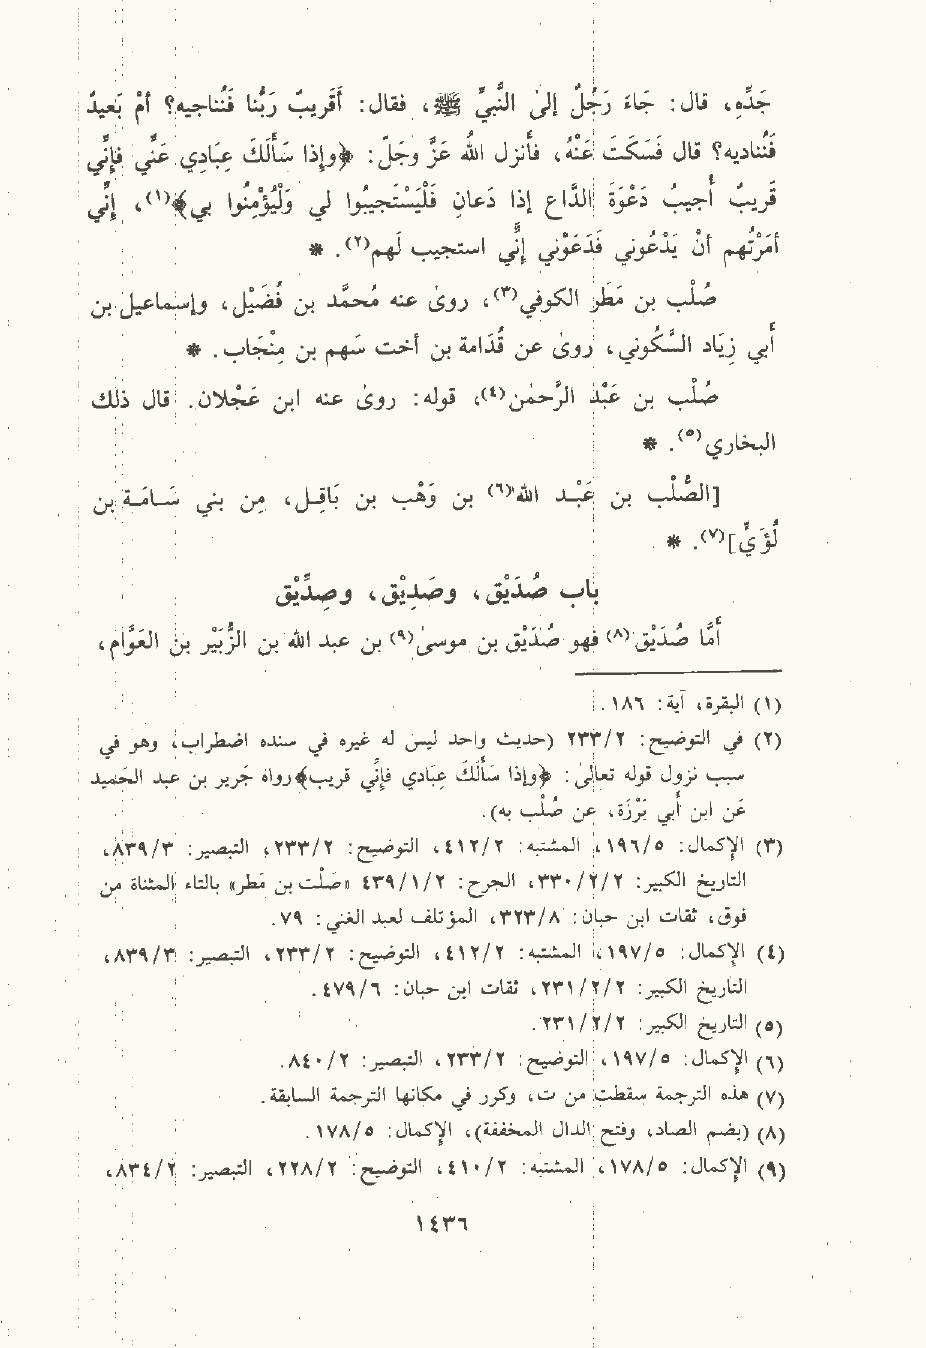 جَدِّهِ، قال: جَاءَ رَجُلٌ إلىٰ النَّبيِّ ﷺ، فقال: أَقَرِيبٌ رَبُّنا فَنُناجيه؟ أمْ بَعيدٌ
فَنُناديه؟ قال فَسَكَتَ عَنْهُ، فأنزل اللهُ عزَّ وجَلَّ: ﴿وإذا سَأَلَكَ عِبَادِي عَنِّي فإنِّي
قَرِيبٌ أُجيبُ دَعْوَةَ الدَّاعِ إذا دَعانِ فَلْيَسْتَجيبُوا لي وَلْيُؤْمِنُوا بي﴾(١)، إنِّي
أمَرْتُهم أنْ يَدْعُوني فَدَعَوْني إنِّي استجيب لَهم(٢). *
صُلْب بن مَطَر الكوفي(٣)، روىٰ عنه مُحمَّد بن فُضَيْل، وإسماعيل بن
أبي زِيَاد السَّكُوني، روىٰ عن قُدَامة بن أخت سَهم بن مِنْجَاب. *
صُلْب بن عَبْدُ الرَّحمٰن(٤)، قوله: روىٰ عنه ابن عَجْلان. قال ذلك
البخاري(٥). *
[الصُّلْب بن عَبْد الله(٦) بن وَهْب بن بَاقِل، مِن بني سَامَة بن
لُؤَيِّ](٧). *
باب صُدَيْق، وصَدِيْق، وصِدِّيْق
أمَّا صُدَيْق(٨) فهو صُدَيْق بن موسىٰ(٩) بن عبد الله بن الزُّبَيْر بن العَوَّام،
(١) البقرة، آية: ١٨٦.
(٢) في التوضيح: ٢/٢٣٣ (حديث واحد ليس له غيره في سنده اضطراب، وهو في
سبب نزول قوله تعالىٰ: ﴿وإذا سَأَلَكَ عِبَادي فإنِّي قريب﴾ رواه جَرير بن عبد الحَميد
عَن ابن أبي بَرْزَة، عن صُلْب به).
(٣) الإكمال: ٥/١٩٦، المشتبه: ٢/٤١٢، التوضيح: ٢/٢٣٣، التبصير: ٣/٨٣٩،
التاريخ الكبير: ٢/٢/٣٣٠، الجرح: ٢/١/٤٣٩ «صَلت بن مَطر» بالتاء المثناة من
فوق، ثقات ابن حبان: ٨/٣٢٣، المؤتلف لعبد الغني: ٧٩.
(٤) الإكمال: ٥/١٩٧، المشتبه: ٢/٤١٢، التوضيح: ٢/٢٣٣، التبصير: ٣/٨٣٩،
التاريخ الكبير: ٢/٢/٢٣١، ثقات ابن حبان: ٦/٤٧٩.
(٥) التاريخ الكبير: ٢/٢/٢٣١.
(٦) الإكمال: ٥/١٩٧، التوضيح: ٢/٢٣٣، التبصير: ٢/٨٤٠.
(٧) هذه الترجمة سقطت من ت، وكرر في مكانها الترجمة السابقة.
(٨) (بضم الصاد، وفتح الدال المخففة)، الإكمال: ٥/١٧٨.
(٩) الإكمال: ٥/١٧٨، المشتبه: ٢/٤١٠، التوضيح: ٢/٢٢٨، التبصير: ٢/٨٣٤،
١٤٣٦